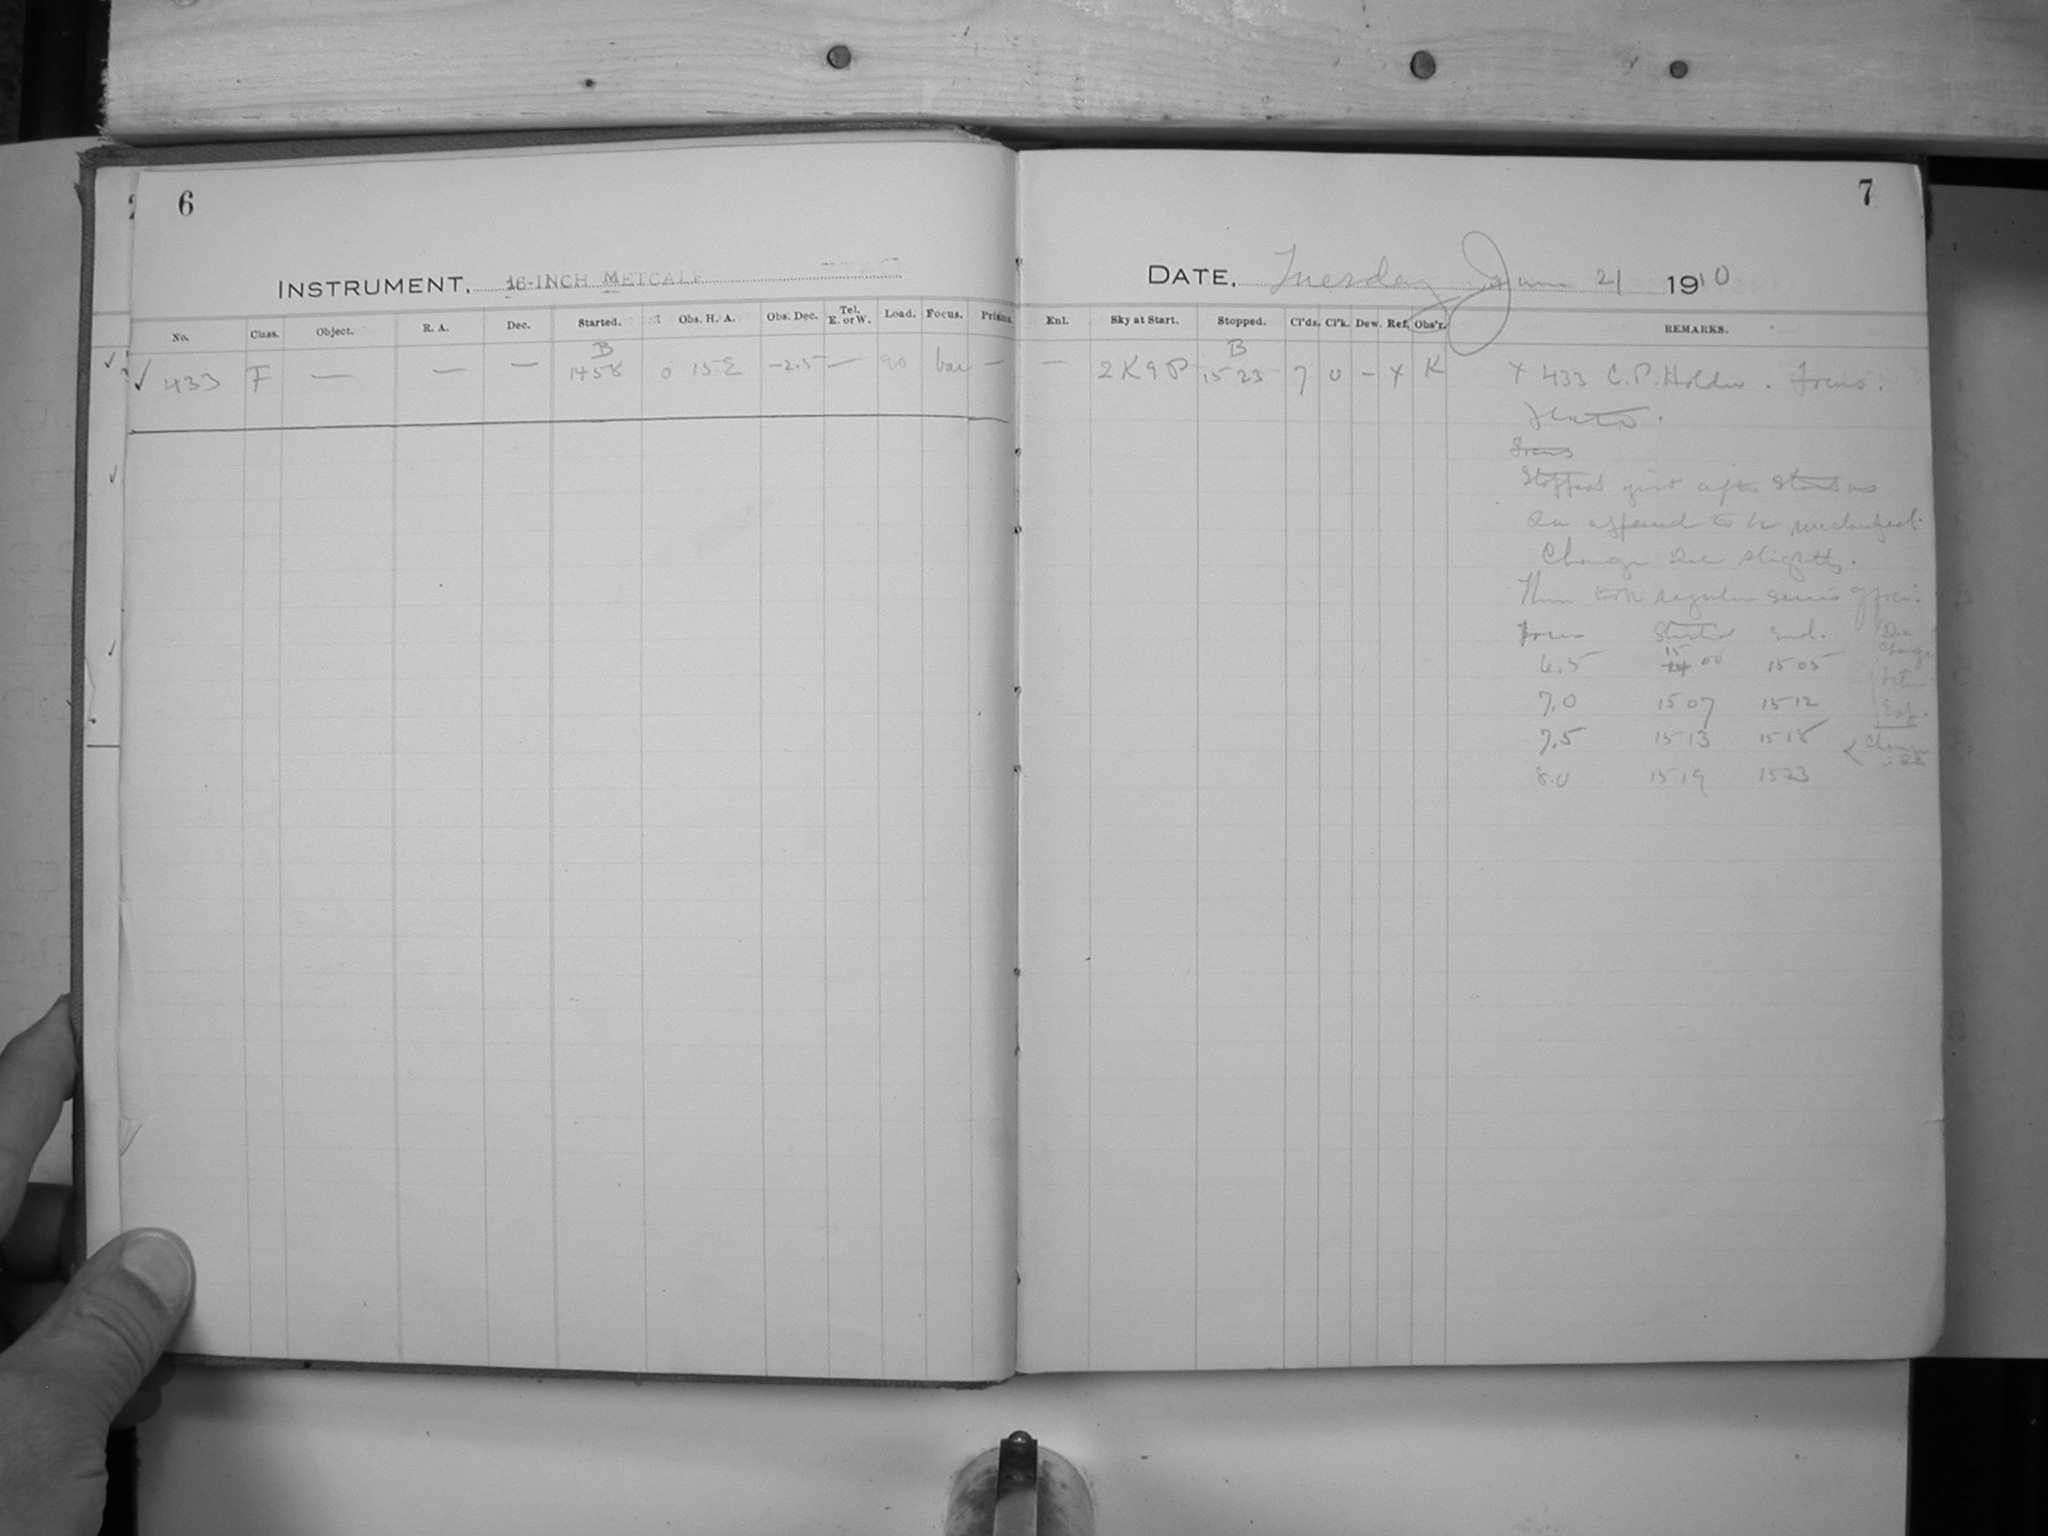 6
INSTRUMENT, 16-INCH METCALF
No. Class. Object. R. A. Dec. Started. Obs. H. A. Obs. Dec. Tel. E. or W. Load. Focus. Prisms.
✓ 433 F — — — B 1458 0 15 E -2.5 — 90 var —
7
DATE, Tuesday June 21 1910
Enl. Sky at Start. Stopped. Cl'ds. Cl'k. Dew. Ref. Obs'r. REMARKS.
— 2K9P B 1523 7 0 - x K x 433 C.P. Holder. Focus.
Plate.
Focus
Stopped just after
appeared to be
Change Dec slightly.
Then took regular series of foci.
Focus Started End. Dec Change
6.5 15 00 15 05 betw
7.0 15 07 15 12 Exp.
7.5 15 13 15 18 < Change
8.0 15 19 1523